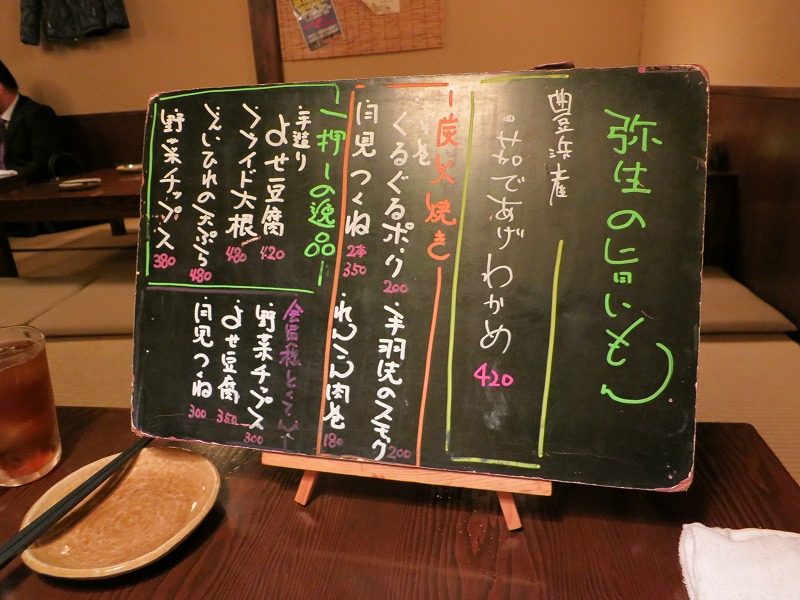 弥生の旨いもん
豊浜産
・茹であげわかめ
420
炭火焼き
・ぐるぐるポーク
200
・手羽先のスモーク
200
・月見つくね
2本
350
・れんこん肉巻
180
一押しの逸品
・手造り
よせ豆腐
420
・フライド大根
480
・えいひれの天ぷら
480
・野菜チップス
380
会員様とくてん
・野菜チップス
300
・よせ豆腐
350
・月見つくね
300